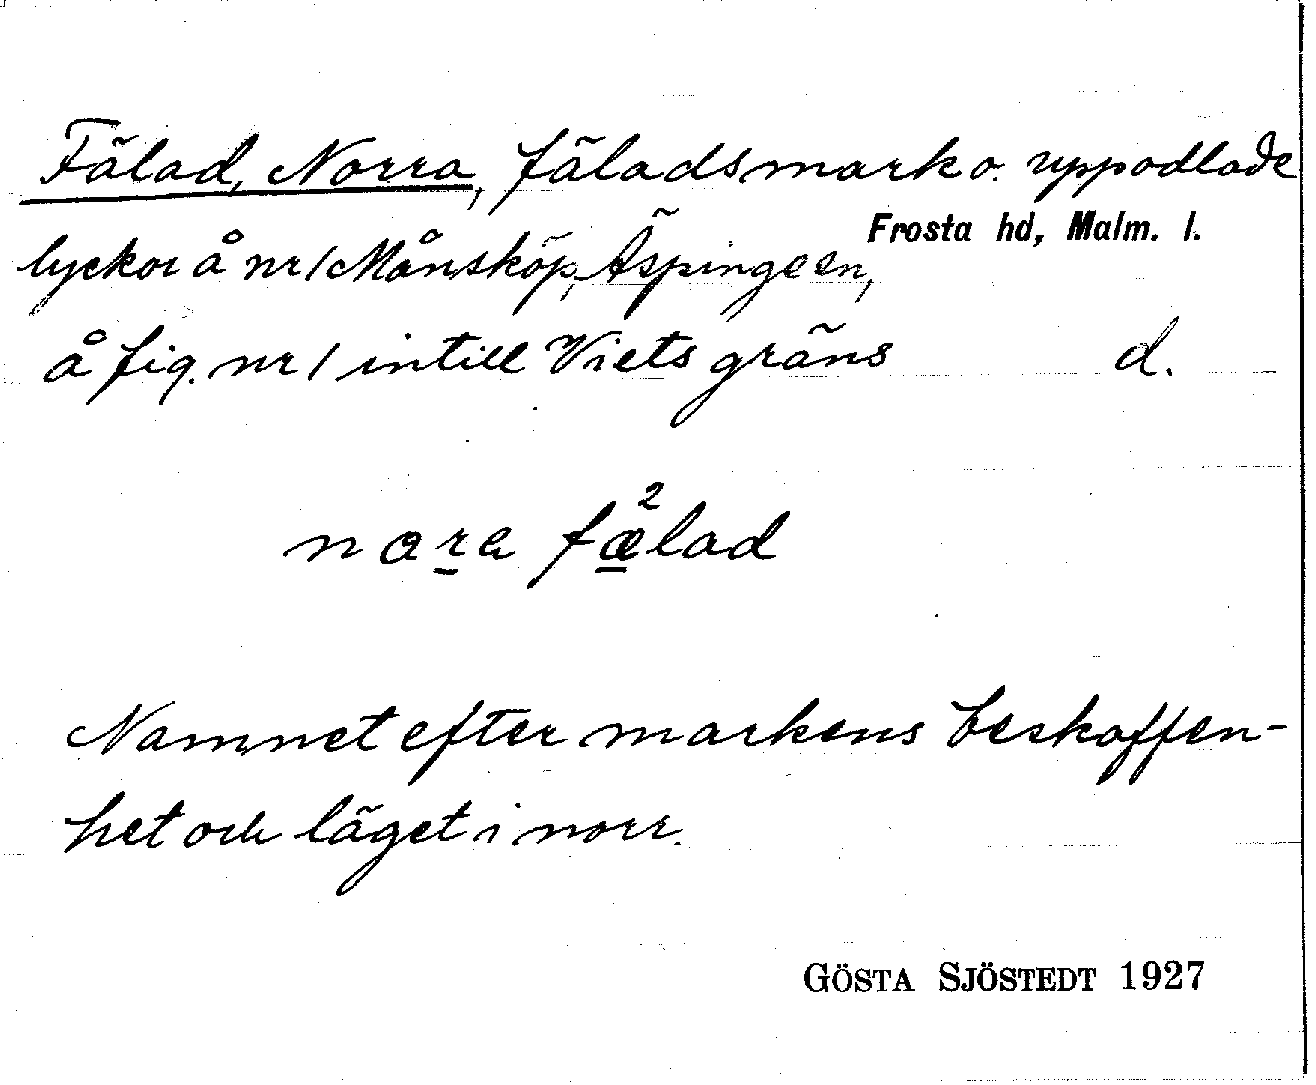 Fälad, Norra, fäladsmark o. uppodlade
Frosta hd, Malm. l.
lyckor å nr 1 Månsköp, Äspinge sn,
å fig. nr 1 intill Viets gräns d.
nora fæ²lad
Namnet efter markens beskaffen-
het och läget i norr.
GÖSTA SJÖSTEDT 1927